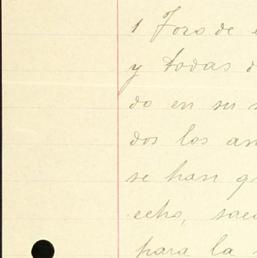 1 Foro de
y todas d
do en su s
dos los an
se han q
echo, sac
para la